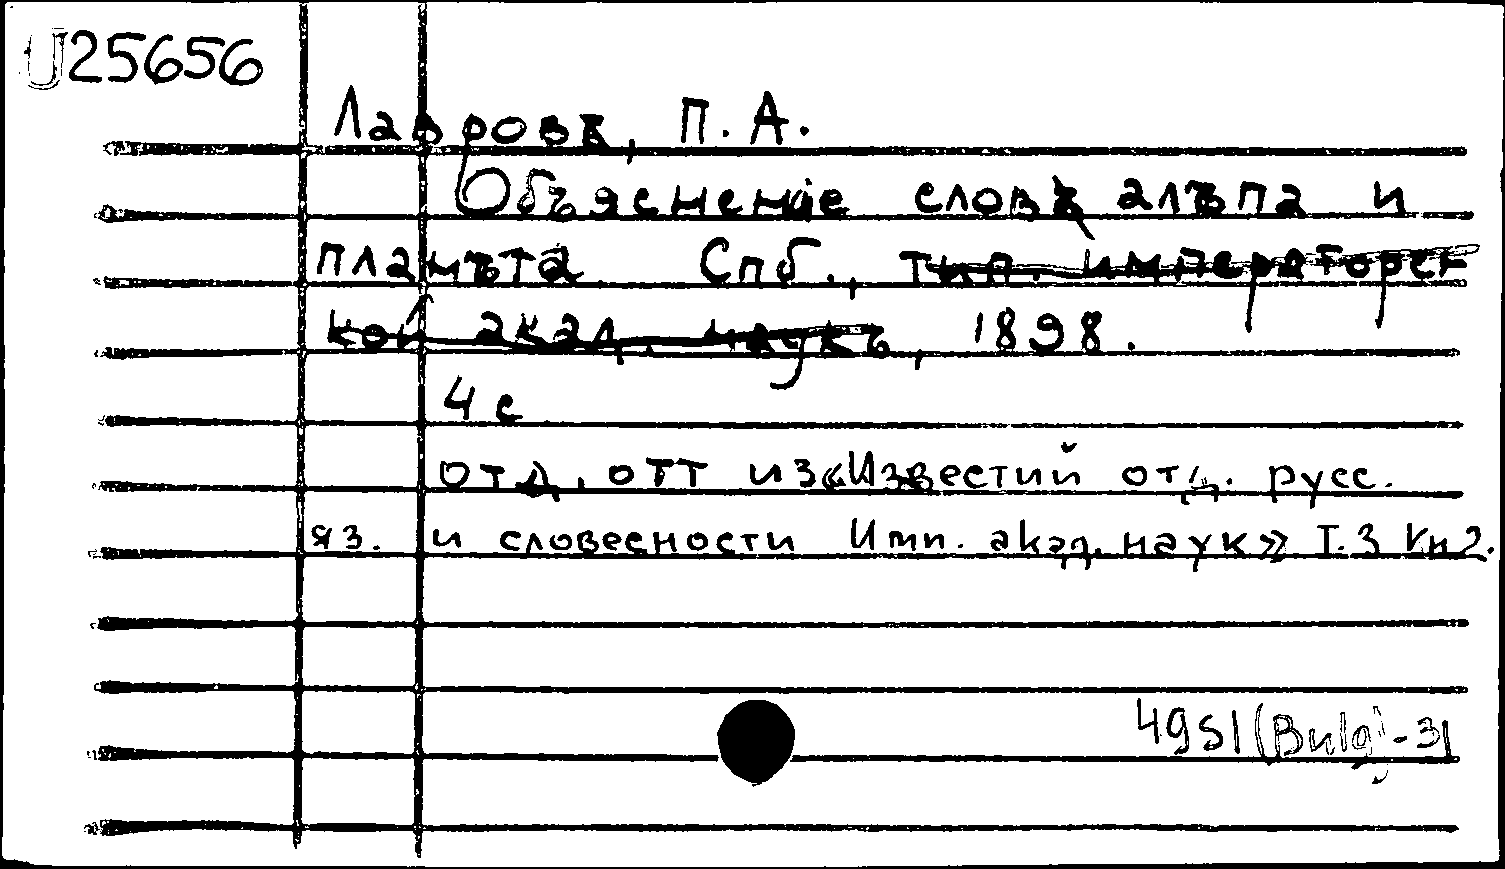 U25656
Лавровъ, П. А.
Объясненіе словъ алъпа и
планъта. Спб., тип. император
кой акад. наукъ, 1898.
4 с
отд. отт из «Известий отд. русс.
яз. и словесности Имп. акад. наук» Т.3 Кн2.
49Sl(Bulg)-31